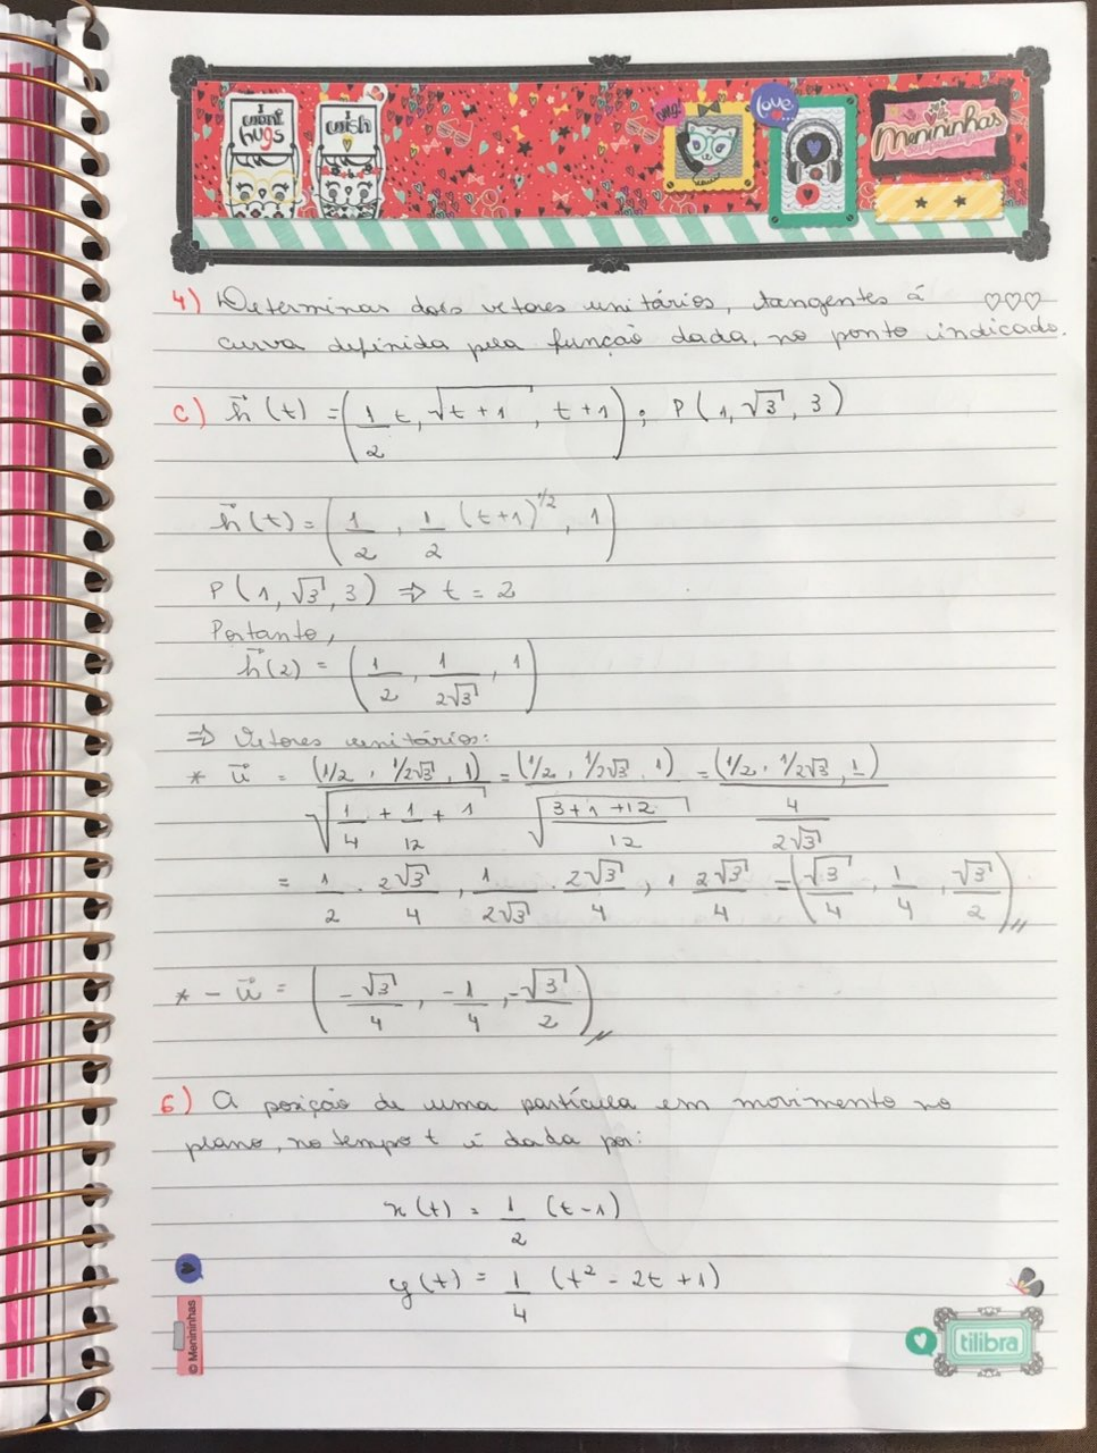 I want hugs
I wish
omg!
love
Menininhas
4) Determinar dois vetores unitários, tangentes á ♡♡♡
curva definida pela função dada, no ponto indicado.
c) h⃗(t) = (1/2 t, √(t+1), t+1); P(1, √3, 3)
h⃗(t) = (1/2, 1/2 (t+1)^1/2, 1)
P(1, √3, 3) ⇒ t = 2
Portanto,
h⃗(2) = (1/2, 1/2√3, 1)
⇒ Vetores unitários:
* u⃗ = (1/2, 1/2√3, 1)/√(1/4 + 1/12 + 1) = (1/2, 1/2√3, 1)/√((3+1+12)/12) = (1/2, 1/2√3, 1)/(4/2√3)
= 1/2 · 2√3/4, 1/2√3 · 2√3/4, 1 2√3/4 = (√3/4, 1/4, √3/2)//
* - u⃗ = (-√3/4, -1/4, -√3/2)//
6) A posição de uma partícula em movimento no
plano, no tempo t é dada por:
x(t) = 1/2 (t-1)
y(t) = 1/4 (t² - 2t + 1)
© Menininhas
tilibra